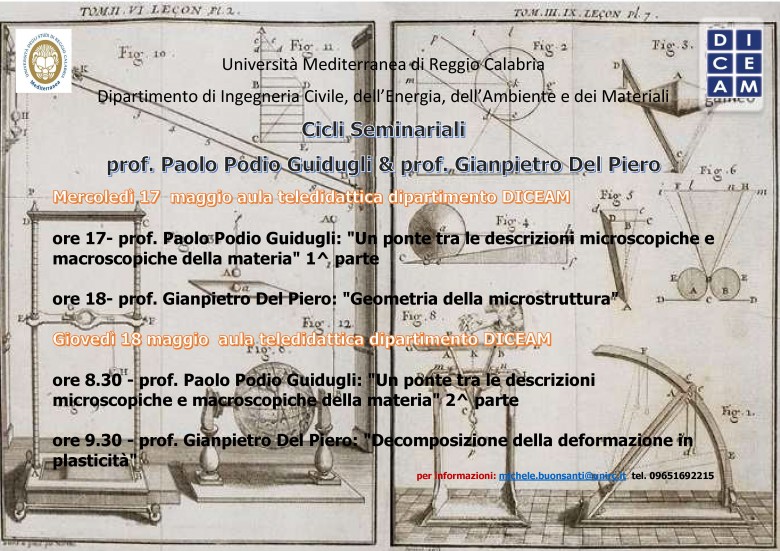 TOM. II. VI LEÇON Pl. 2.
TOM. III. IX. LEÇON Pl. 7.
Fig. 10.
Fig. 11.
Fig. 2
Fig. 3.
D I
C E
A M
Università Mediterranea di Reggio Calabria
Dipartimento di Ingegneria Civile, dell'Energia, dell'Ambiente e dei Materiali
Cicli Seminariali
prof. Paolo Podio Guidugli & prof. Gianpietro Del Piero
Fig. 6
Mercoledì 17 maggio aula teledidattica dipartimento DICEAM
Fig. 5
Fig. 4
ore 17- prof. Paolo Podio Guidugli: "Un ponte tra le descrizioni microscopiche e
macroscopiche della materia" 1^ parte
ore 18- prof. Gianpietro Del Piero: "Geometria della microstruttura"
Fig. 12
Fig. 8
Giovedì 18 maggio aula teledidattica dipartimento DICEAM
ore 8.30 - prof. Paolo Podio Guidugli: "Un ponte tra le descrizioni
microscopiche e macroscopiche della materia" 2^ parte
Fig. 1.
ore 9.30 - prof. Gianpietro Del Piero: "Decomposizione della deformazione in
plasticità"
per informazioni: michele.buonsanti@unirc.it tel. 09651692215